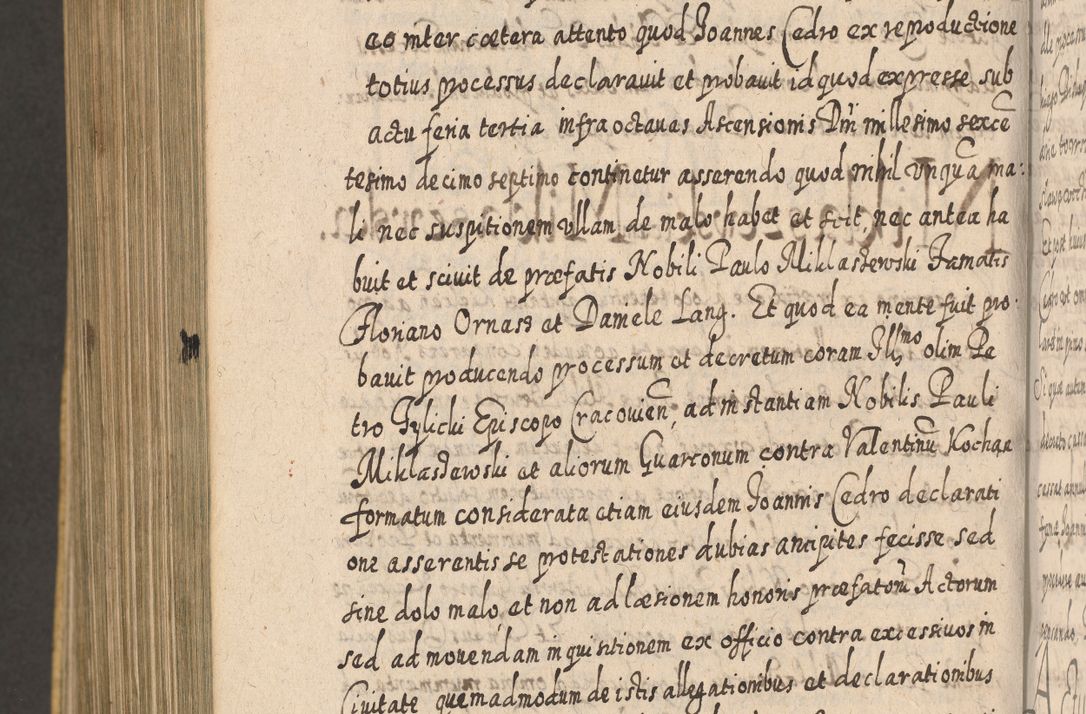 eo inter cœtera attento quod Joannes Cedro ex reproductione
totius processus declarauit et probauit id quod expresse sub
actu feria tertia infra octauas Ascensionis Dni millesimo sexcē
tesimo decimo septimo continetur asserendo quod nihil vnquā ma:
li nec suspitionem vllam de malo habet et scit, nec antea ha
buit et sciuit de præfatis Nobili Paulo Miklaszewski Famatis
Floriano Ornast et Daniele Lang. Et quod ea mente fuit pro:
bauit producendo processum et decretum coram Illmo olim Pe
tro Tylicki Episcopo Cracouien, ad instantiam Nobilis Pauli
Miklaszewski et aliorum Guarconum contra Valentinū Kochaa
formatum considerata etiam eiusdem Joannis Cedro declarati
one asserentis se protestationes dubias ancipites fecisse sed
sine dolo malo et non ad læsionem honoris præfatorū Actorum
sed ad mouendam inquisitionem ex officio contra excessiuos in
Ciuitate quemadmodum de istis allegationibus et declarationibus